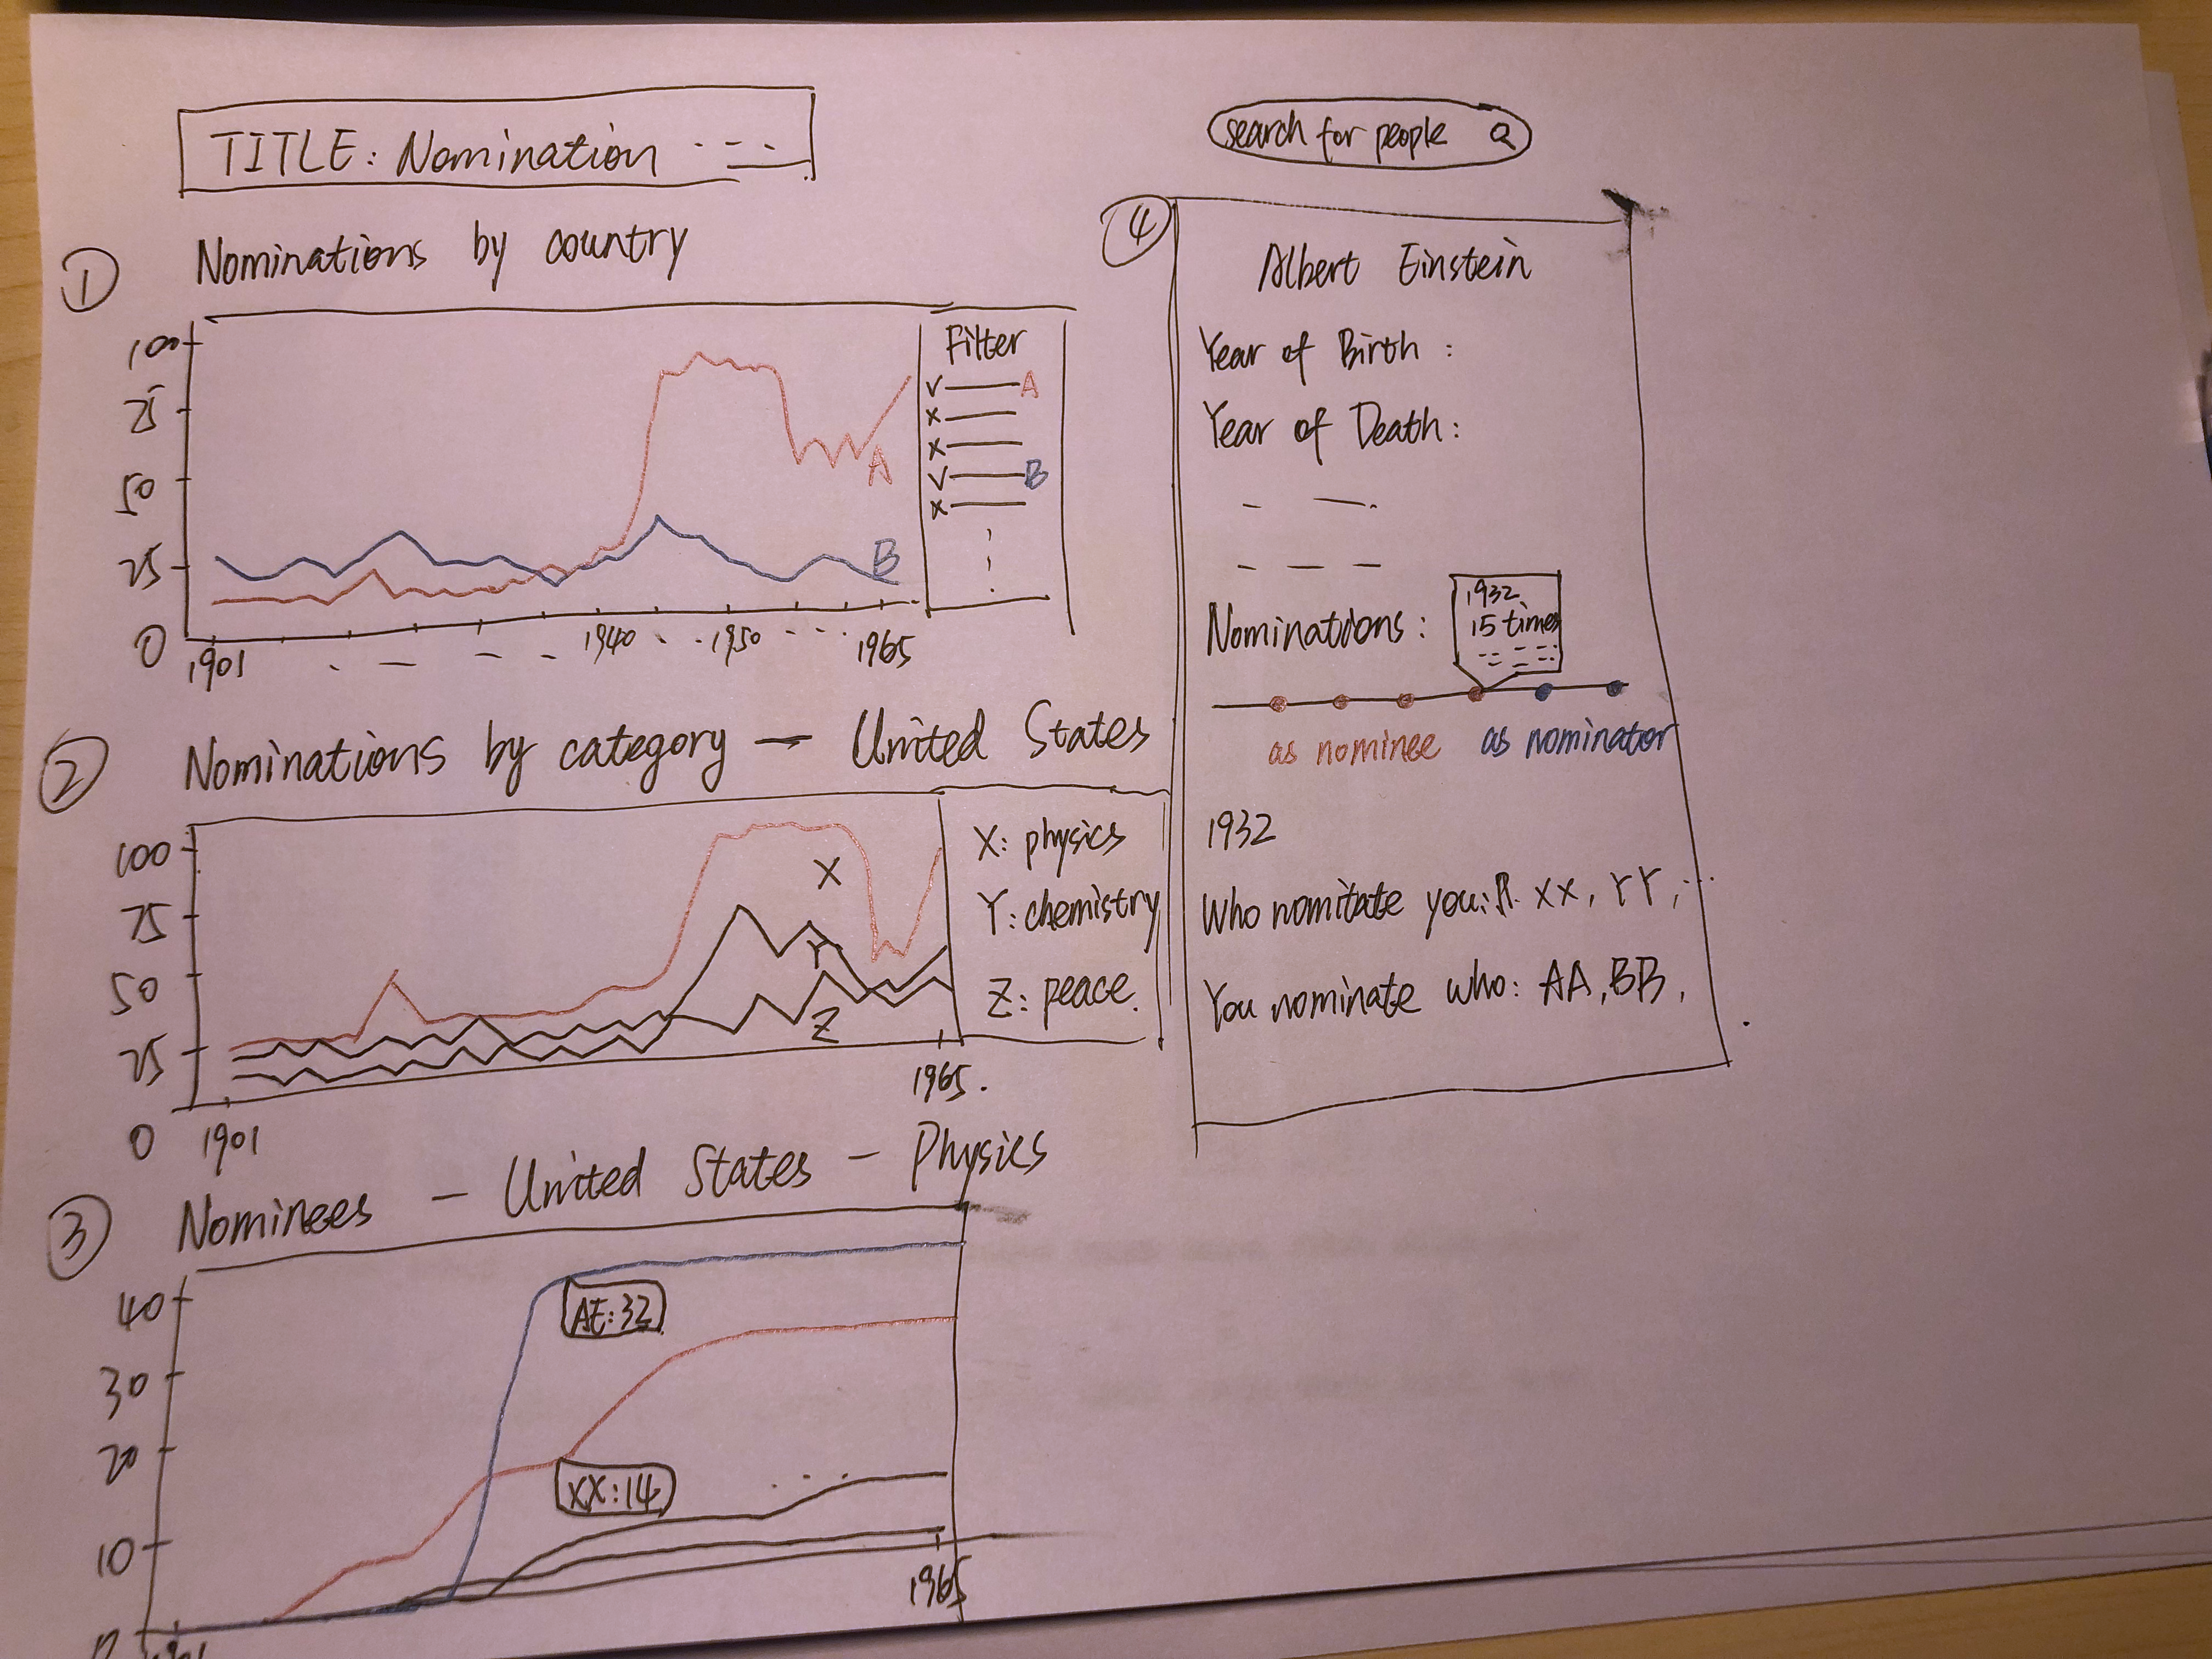 TITLE: Nomination
search for people
① Nominations by country
100
75
50
25
0
1901
1940
1950
1965
A
B
Filter
v A
x
x
v B
x
② Nominations by category — United States
100
75
50
25
0
1901
1965.
X
Y
Z
X: physics
Y: chemistry
Z: peace.
③ Nominees — United States — Physics
40
30
20
10
0
1965
AE: 32
XX: 14
④
Albert Einstein
Year of Birth :
Year of Death :
Nominations :
1932
15 times
as nominee as nominator
1932
Who nomitate you: XX, YY, ...
You nominate who: AA, BB,